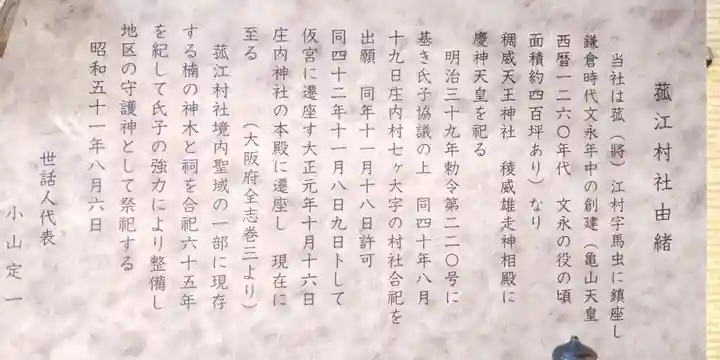 菰江村社由緒
当社は菰(將)江村字馬虫に鎮座し
鎌倉時代文永年中の創建(亀山天皇
西暦一二六〇年代 文永の役の頃
面積約四百坪あり)なり
稠威天王神社 稜威雄走神相殿に
慶神天皇を祀る
明治三十九年勅令第二二〇号に
基き氏子協議の上 同四十年八月
十九日庄内村七ヶ大字の村社合祀を
出願 同年十一月十八日許可
同四十二年十一月八日九日トして
仮宮に遷座す大正元年十月十六日
庄内神社の本殿に遷座し 現在に
至る (大阪府全志巻三より)
菰江村社境内聖域の一部に現存
する楠の神木と祠を合祀六十五年
を紀して氏子の強力により整備し
地区の守護神として祭祀する
昭和五十一年八月六日
世話人代表
小山定一